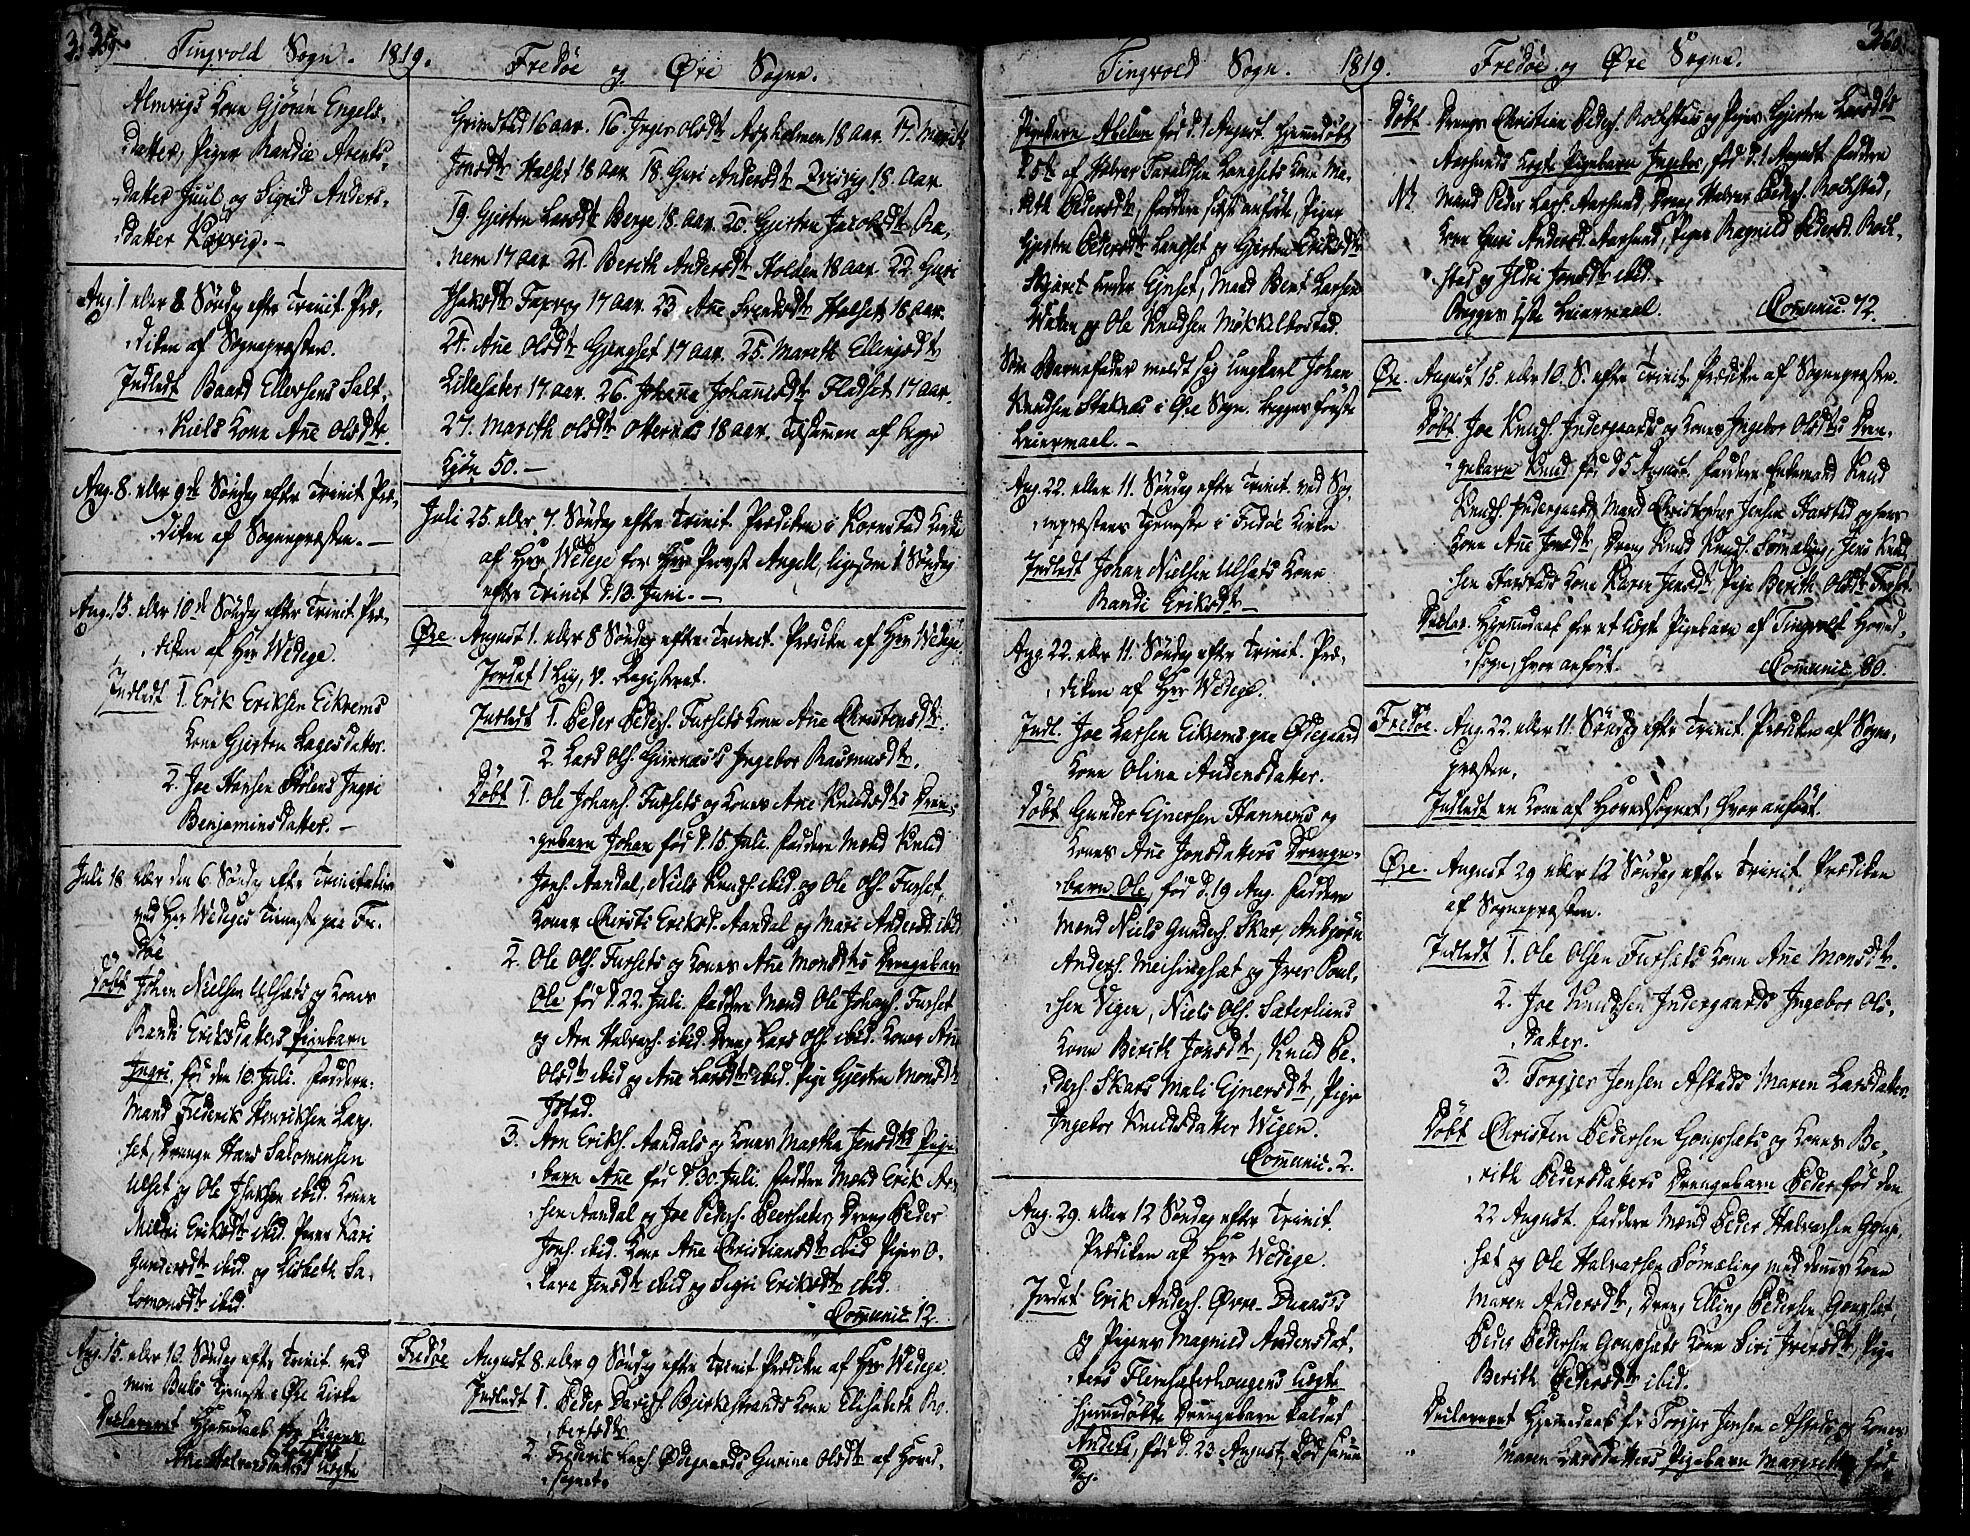 359.
Tingvold Sogn. 1819.
Almvigs Kone Gjøran Engels-
datter, Piger Randie Arents-
datter Juul og Sigrid Anders-
datter Korsvig. –
Aug. 1 eller 8 Søndag efter Trinit. Præ-
diken af Sognepræsten.
Indledt Baard Ellevsens Salt-
Kone Ane Olsdtr.
Aug. 8. eller 9de Søndag efter Trinit. Præ-
diken af Sognepræsten. –
Aug. 15. eller 10de Søndag efter Trinit. Præ-
diken af Hr Wedege.
Indledt 1. Erik Eriksen Eikrems
Kone Gjertru Lagesdatter.
2. Joe Hansen Holens Ingri
Benjaminsdatter. –
Juli 18. eller den 6. Søndag efter Trinitatis
ved Hr Wedeges Tieneste paa Fre-
døe
Døbt Johan Nielsen Ulsæts og Kones
Randi Eriksdatters Pigebarn
Ingri, fød den 10. Juli. Faddere:
Mand Frederik Henriksen
sæt, Drenge Hans Salomensen
Ulset og Ole Isaksen ibid. Kone
Mildri Eriksdtr ibid. Piger Kari
Gundersdtr ibid. og Lisbeth Sa-
lomonsdtr ibid.
Aug. 15. eller 10. Søndag efter Trinit. ved
min Tjeneste i Øre Kirke
Declareret Hjemmedaab for Pigens
Ane Halversdatters uægte
Fredøe og Øre Sogne.
Grimstad 16 aar. 16. Inger Olsdtr Aspholmen 18 aar. 17. Marith
Jonsdtr Halset 18 aar. 18. Guri Andersdtr Qvisvig 18. Aar
19. Gjertru Larsdtr Berge 18. aar. 20. Gjertru Jacobsdtr Ra-
nem 17 aar. 21. Berith Andersdtr Holten 18 aar. 22. Guri
Isaksdtr 17 aar. 23. Ane Svendsdtr Halset 18 aar.
24. Ane Olsdtr Gjengset 17 aar. 25. Mareth Ellingsdtr
Lillesæter 17 aar. 26. Johanna Johanesdtr Fladset 17 aar.
27. Mareth Olsdtr Otternæs 18 aar. Tilsamen af begge
Kjøn 50. –
Juli 25. eller 7. Søndag efter Trinit. Prædiken i Kornstad Kirke
af Hr Wedege for Hr Provst Angell, ligesom 1 Søndag
efter Trinit d. 13. Juni. –
Øre August 1. eller 8 Søndag efter Trinit. Prædiken af Hr Wedege.
Jordet 1 Lig, v. Registret.
Indledt 1. Peder Peders. Fursets Kone Ane Christensdtr.
2. Lars Ols. Gimnæss Ingebor Rasmusdtr.
Døbt 1. Ole Johans. Fursets og Kones Ane Knudsdtrs Dren-
gebarn Johan fød d. 15. Juli. Faddere Mænd Knud
Jons. Aandal, Niels Knuds. ibid. og Ole Ols. Furset,
Koner Christi Eriksd. Aandal og Mari Andersd. ibid.
2. Ole Ols. Fursets og Kones Ane Monsdtrs Drengebarn
Ole fød d. 22. Juli. Faddere Mænd Ole Johans. Furset
og Arn Halvors. ibid. Dreng Lars Ols. ibid. Koner Ane
Olsdtr ibid og Ane Larsdtr ibid. Pige Gjertru Monsdtr
Istad.
3. Arn Eriks. Aandals og Kones Martha Jensdtrs Pige-
barn Ane fød d. 30. Juli. Faddere Mænd Erik Arn-
sen Aandal og Joe Peders. Beersæter, Dreng Peder
Jons. ibid. Kone Ane Christiansdtr ibid Piger O-
lava Jensdtr ibid og Sigri Eriksdtr ibid.
Comunic. 12.
Fredøe August 8. eller 9 Søndag efter Trinit. Prædiken af Hr Wedege.
Indledt 1. Peder Davids. Bjerkestrands Kone Elisabeth Ro-
bertsdtr
2. Frederik Lars. Ødegaards Gurina Olsdtr af Hoved-
sognet.
Tingvold Sogn. 1819.
Pigebarn Abelon fød d. 1 August. Hjemmedøbt
d. 5te af Halvor Taraldsen Langsets Kone Ma-
reth Pedersdtr, Faddere sidst anførte, Piger
Gjertru Pedersdtr Langset og Gjertru Eriksdtr
Skjaret under Ejnset, Mænd Bent Larsen
og Ole Knudsen Møkkelbostad.
Som Barnefader meldt sig Ungkarl Johan
Knudsen Staknæs i Øre Sogn. Begges første
Leiermaal. –
Aug. 22. eller 11. Søndag efter Trinit. ved Sog-
nepræstens Tjeneste i Fredøe Kirke
Indledt Johan Nielsen Ulsæts Kone
Randi Eriksdtr –
Aug. 22. eller 11. Søndag efter Trinit. Præ-
diken af Hr Wedege.
Indl. Joe Larsen Eikrems paa Ødegaard
Kone Olina Andersdatter.
Døbt Gunder Ejnersen Hannems og
Kones Ane Jonsdatters Drenge-
barn Ole, fød d. 19 Aug. Faddere
Mænd Niels Gunders. Skar, Anbjørn
Anders. Meisingsæt og Iver Poul-
sen Vegen, Niels Ols. Sæterliens
Kone Berith Jonsdtr, Knud Pe-
ders. Skars Mali Ejnersdtr, Pige
Ingebor Knudsdatter Wegen.
Comunic. 2.
Aug. 29. eller 12 Søndag efter Trinit.
Prædiken af Hr Wedege.
Jordet Erik Anders. Øvre-
og Pigens Magnild Andersdat-
ters Flemsæterhougens uægte
hjemmedøbte Drengebarn kaldet
Anders, fød d. 23. August, død samme
Dag.
360.
Fredøe og Øre Sogne.
Døbt Dreng Christian Peders. Rochstad og Piges Gjertru Larsdtrs
Aarsunds uægte Pigebarn Ingebor, fød d. 1 August. Faddere
Mænd Peder Lars. Aarsund, Dreng Halvor Peders. Rochstad,
Kone Guri Andersd. Aarsund, Piger Ragnild Pedersd. Roch-
stad og Ildri Jensdtr ibid.
Begges 1ste Leiermaal. Comunic. 72.
Øre. August 15. eller 10. S. efter Trinit. Prædiken af Sognepræsten.
Døbt Joe Knuds. Indergaards og Kones Ingebor Olsdtrs Dren-
gebarn Knud fød d. 5 August. Faddere Enkemand Knud
Knuds. Indergaard, Mand Christopher Jensen Harstad og hans
Kone Ane Jonsdtr, Dreng Knud Knuds. Sømæling, Jens Knud-
sen Harstads Kone Karen Jensdtr Pige Berith Olsdtr Furset.
Declar. Hjemmedaab for et uægte Pigebarn af Tingvold Hoved-
sogn, hvor anført. Comunic. 80.
Fredøe. Aug. 22. eller 11. Søndag efter Trinit. Prædiken af Sogne-
præsten.
Indledt en Kone af Hovedsognet, hvor anført.
Øre. August 29 eller 12 Søndag efter Trinit. Prædiken
af Sognepræsten.
Indledt 1. Ole Olsen Fursæts Kone Ane Monsdtr.
2. Joe Knudsen Indergaards Ingebor Ols-
datter.
3. Torgjer Jensen Alstads Maren Larsdatter.
Døbt Christen Pedersen Goupsæts og Kones Be-
rith Pedersdatters Drengebarn Peder fød den
22 August. Faddere Mænd Peder Halvorsen Goup-
sæt og Ole Halvorsen Sømæling med dennes Kone
Maren Andersdtr, Dreng Elling Pedersen Goupset,
Peder Pedersen Goupsæts Kone Siri Iversdtr, Pige
Berith Pedersdtr ibid.
Declareret Hjemmedaab for Torgjer Jensen Alstads og Kones
Maren Larsdatters Pigebarn Margrethe fød